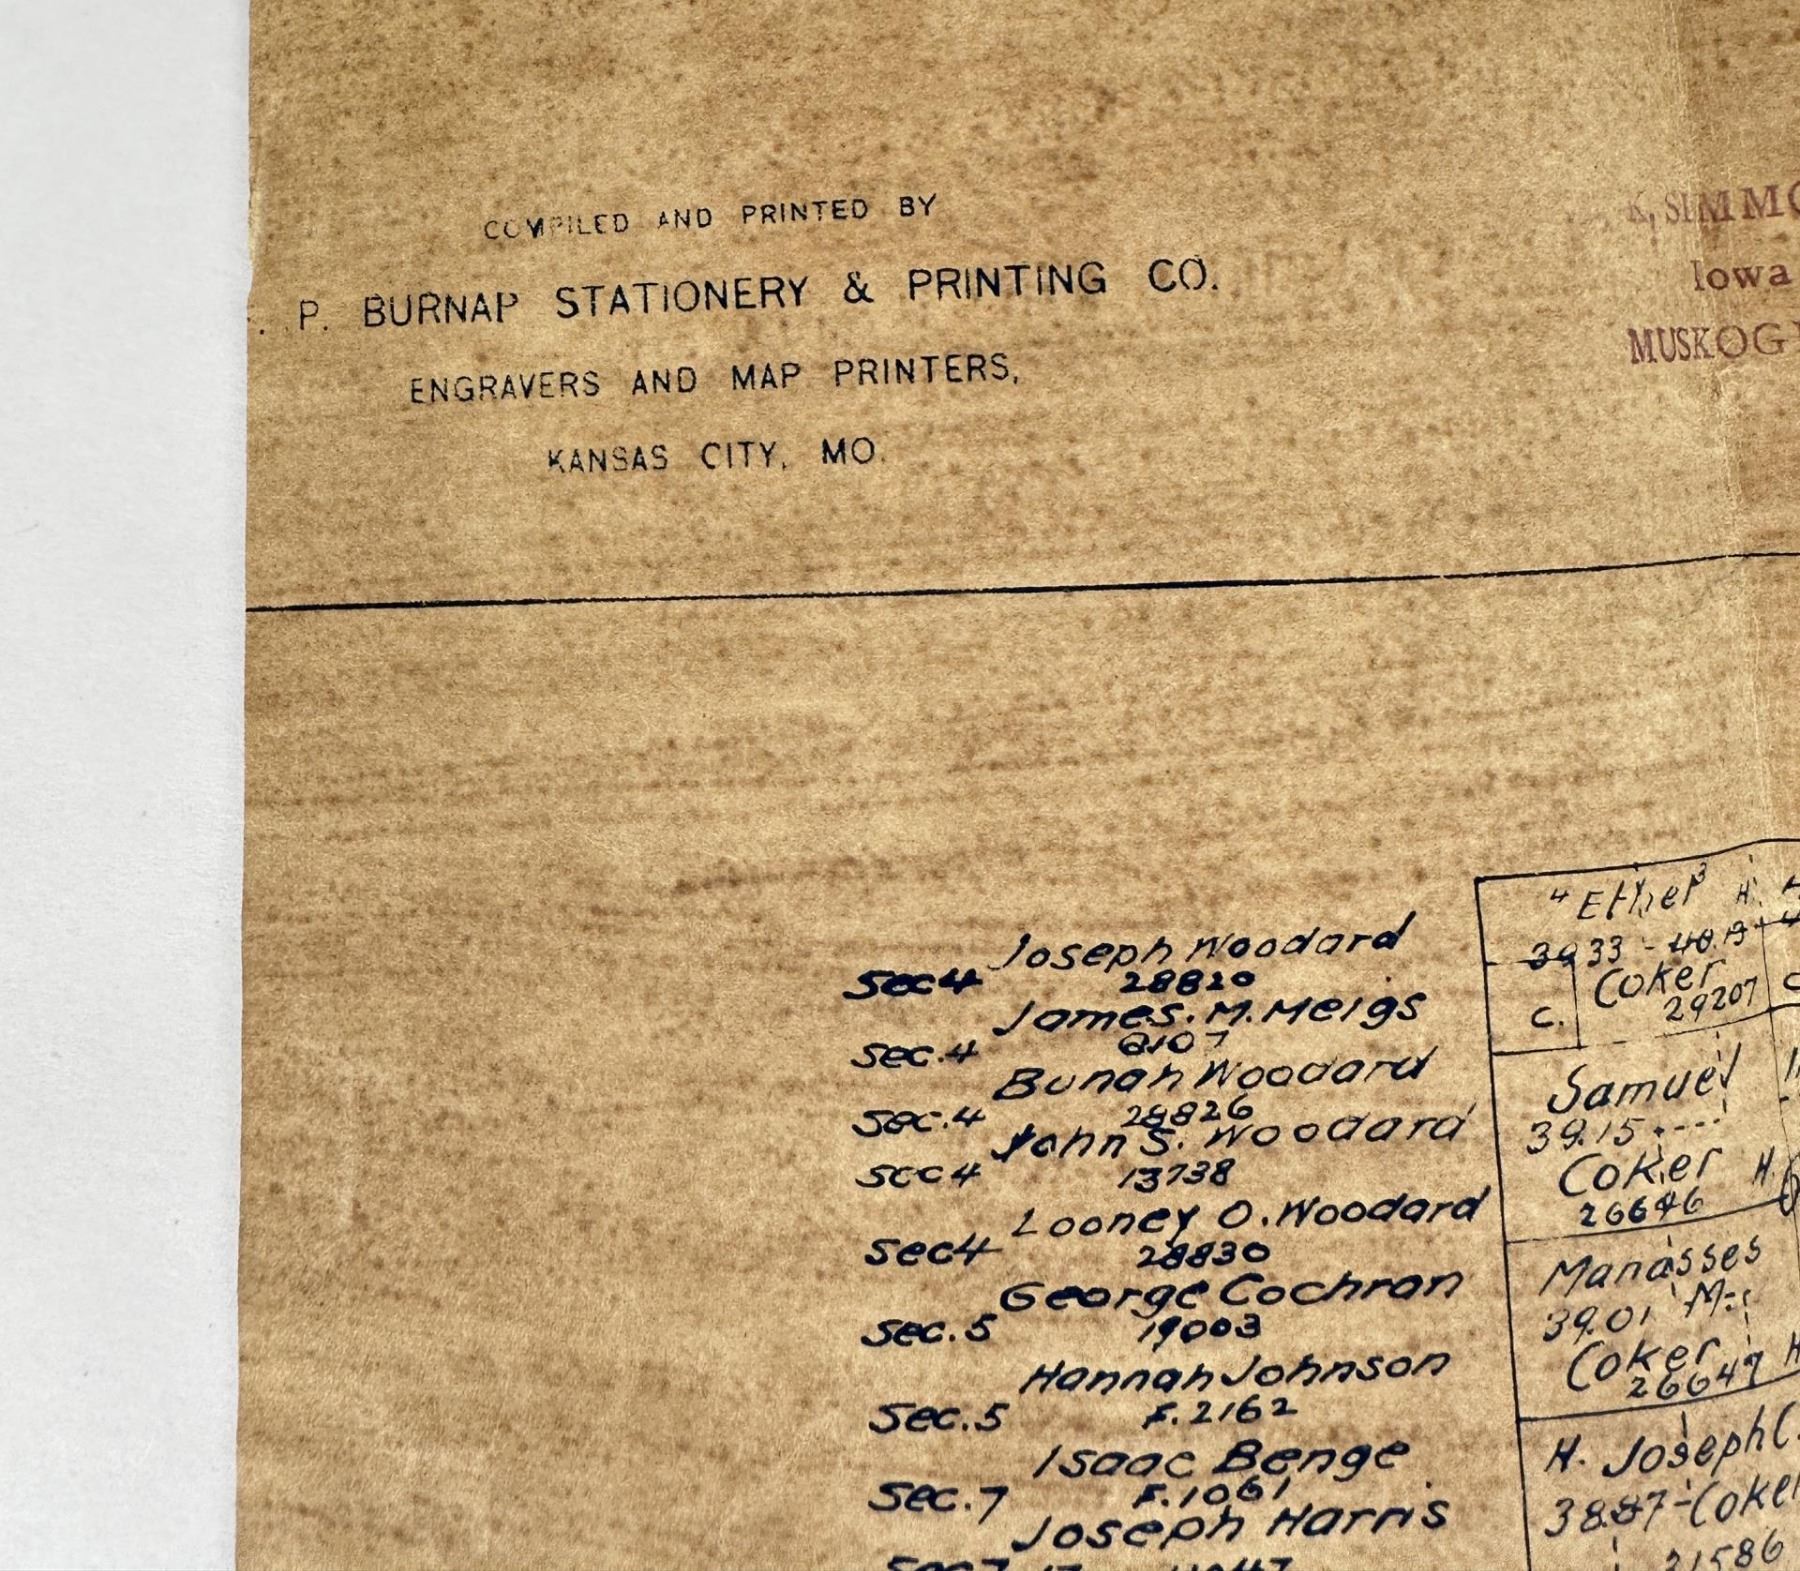 COMPILED AND PRINTED BY
. P. BURNAP STATIONERY & PRINTING CO.
ENGRAVERS AND MAP PRINTERS,
KANSAS CITY, MO.
K, SIMMO
Iowa
MUSKOG
Joseph Woodard
Sec 4 28820
James. M. Meigs
Sec. 4
Bunah Woodard
Sec. 4 28826
John S. Woodard
Sec 4 13738
Looney O. Woodard
Sec 4 28830
George Cochran
Sec. 5 19003
Hannah Johnson
Sec. 5 F. 2162
Isaac Benge
Sec. 7 F. 1061
Joseph Harris
Sec 7
"Ethel H.
3933 - 40.13
Coker
C. 29207
Samuel
39.15
Coker H
26646
Manasses
39.01 M.
Coker H
26647
H. Joseph C.
38.87 - Coker
21586